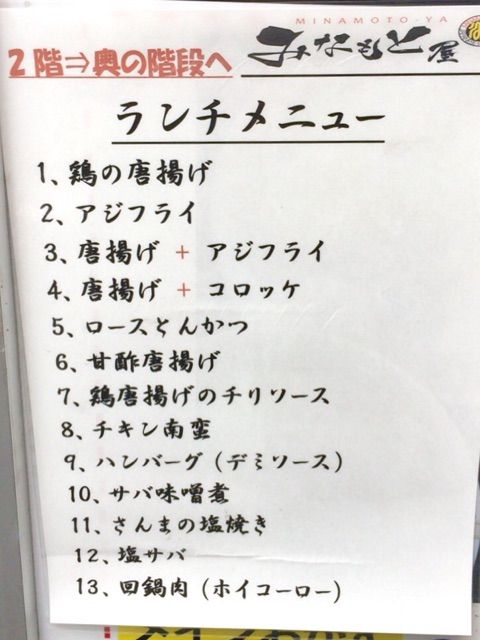 MINAMOTO-YA
みなもと屋
2階⇒奥の階段へ
ランチメニュー
1、鶏の唐揚げ
2、アジフライ
3、唐揚げ + アジフライ
4、唐揚げ + コロッケ
5、ロースとんかつ
6、甘酢唐揚げ
7、鶏唐揚げのチリソース
8、チキン南蛮
9、ハンバーグ（デミソース）
10、サバ味噌煮
11、さんまの塩焼き
12、塩サバ
13、回鍋肉（ホイコーロー）